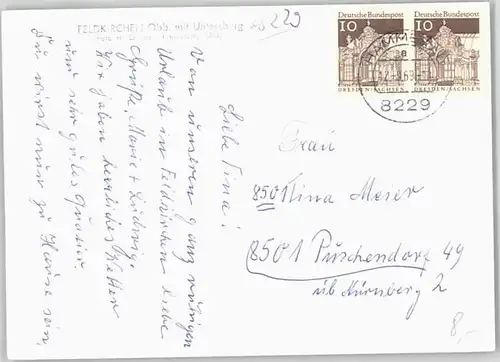 FELDKIRCHEN Obb. mit Untersberg
8229
Liebe Tina!
Von unseren ganz ruhigen
Urlaub in Feldkirchen liebe
Grüße, Marie + Ludwig.
Wir haben herrliches Wetter
und sehr gutes Quartier
Du wirst nun zu Hause sein.
Deutsche Bundespost
10
DRESDEN/SACHSEN
Deutsche Bundespost
10
DRESDEN/SACHSEN
a
8229
Frau
8501 Tina Meier
8501 Puschendorf 49
üb Nürnberg 2
8,-